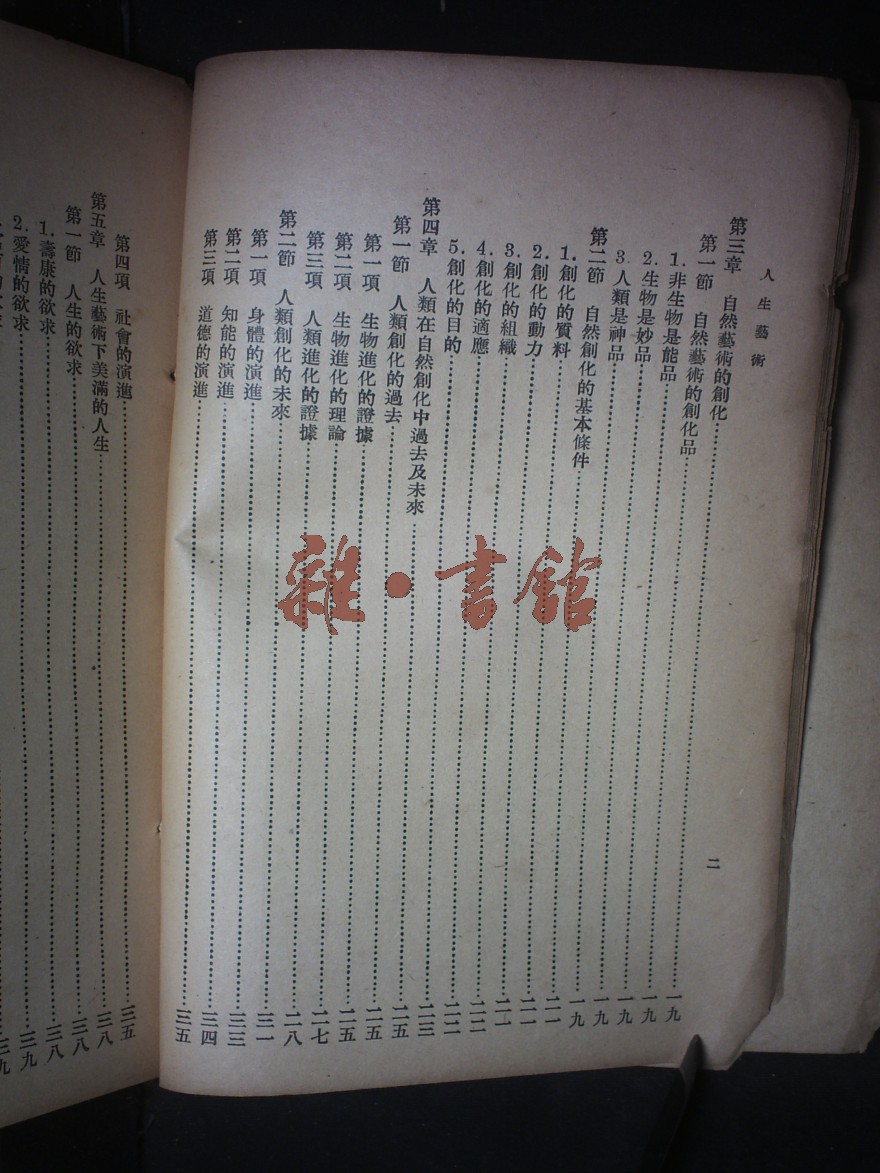 人生藝術
二
第三章 自然藝術的創化……一九
第一節 自然藝術的創化品……一九
1. 非生物是能品……一九
2. 生物是妙品……一九
3. 人類是神品……一九
第二節 自然創化的基本條件……二一
1. 創化的質料……二一
2. 創化的動力……二一
3. 創化的組織……二二
4. 創化的適應……二二
5. 創化的目的……二三
第四章 人類在自然創化中過去及未來……二五
第一節 人類創化的過去……二五
第一項 生物進化的證據……二五
第二項 生物進化的理論……二七
第三項 人類進化的證據……二八
第二節 人類創化的未來……三一
第一項 身體的演進……三三
第二項 知能的演進……三四
第三項 道德的演進……三五
第四項 社會的演進……三五
第五章 人生藝術下美滿的人生……三八
第一節 人生的欲求……三八
1. 壽康的欲求……三八
2. 愛情的欲求……三九
三九
雜·書館